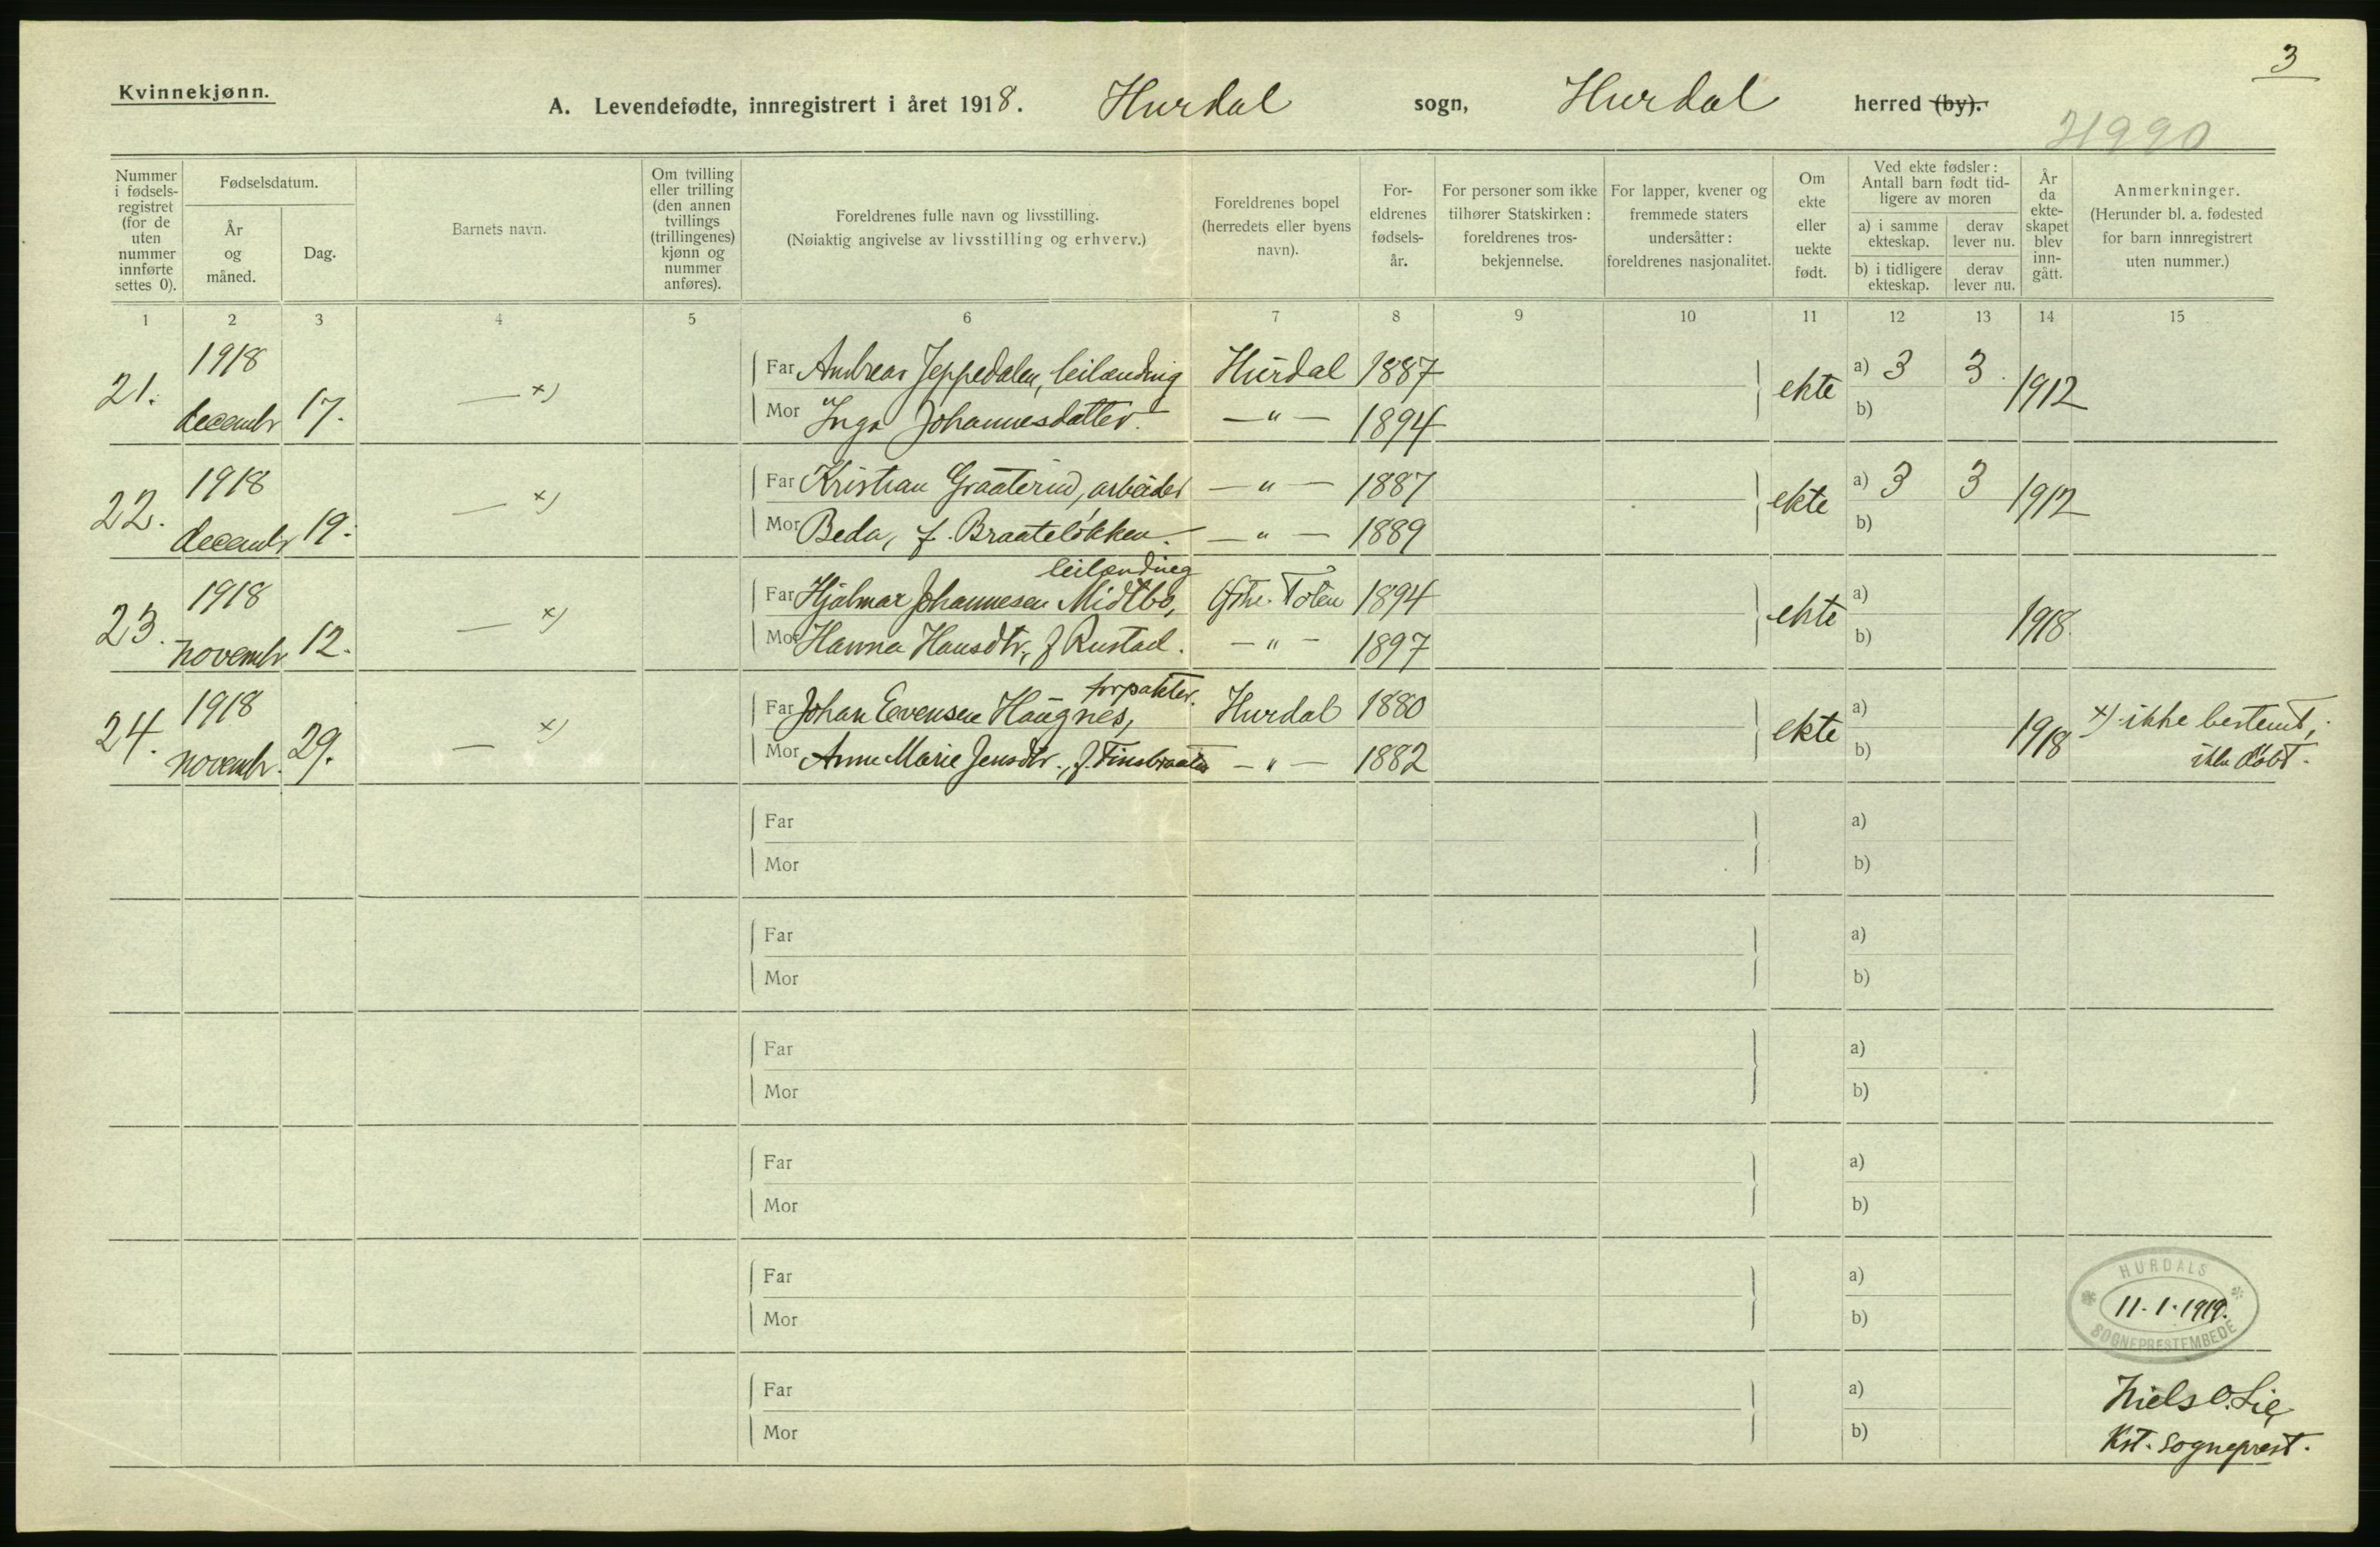 3
Kvinnekjønn.
A. Levendefødte, innregistrert i året 1918. Hurdal sogn, Hurdal herred (by).
H990
Nummer i fødsels-registret (for de uten nummer innførte settes 0).
Fødselsdatum.
År og måned.
Dag.
Barnets navn.
Om tvilling eller trilling (den annen tvillings (trillingenes) kjønn og nummer anføres).
Foreldrenes fulle navn og livsstilling.
(Nøiaktig angivelse av livsstilling og erhverv.)
Foreldrenes bopel (herredets eller byens navn).
For-eldrenes fødsels-år.
For personer som ikke tilhører Statskirken: foreldrenes tros-bekjennelse.
For lapper, kvener og fremmede staters undersåtter: foreldrenes nasjonalitet.
Om ekte eller uekte født.
Ved ekte fødsler: Antall barn født tid-ligere av moren
a) i samme ekteskap.
derav lever nu.
b) i tidligere ekteskap.
derav lever nu.
År da ekte-skapet blev inn-gått.
Anmerkninger.
(Herunder bl. a. fødested for barn innregistrert uten nummer.)
1 2 3 4 5 6 7 8 9 10 11 12 13 14 15
21. 1918 decembr 17. — x)
Far Andreas Jeppedalen, leilænding Hurdal 1887 ekte a) 3 3 1912
Mor Inga Johannesdatter. — " — 1894 b)
22. 1918 decembr 19. — x)
Far Kristian Graaterud, arbeider — " — 1887 ekte a) 3 3 1912
Mor Beda, f. Braateløkken. — " — 1889 b)
23. 1918 novembr 12. — x)
leilænding
Far Hjalmar Johannesen Midtbø, Østre Toten 1894 ekte a) 1918.
Mor Hanna Hansdtr., f Rustad. — " — 1897 b)
24. 1918 novembr. 29. — x)
forpakter.
Far Johan Evensen Haugnes, Hurdal 1880 ekte a) 1918 x) ikke bestemt;
Mor Anne Marie Jensdtr., f. Finsbraaten — " — 1882 b) ikke døbt.
Far a)
Mor b)
Far a)
Mor b)
Far a)
Mor b)
Far a)
Mor b)
Far a)
Mor b)
HURDALS
11. 1. 1919.
SOGNEPRESTEMBEDE
Far a)
Mor b)
Niels O. Lie
Kst. Sogneprest.